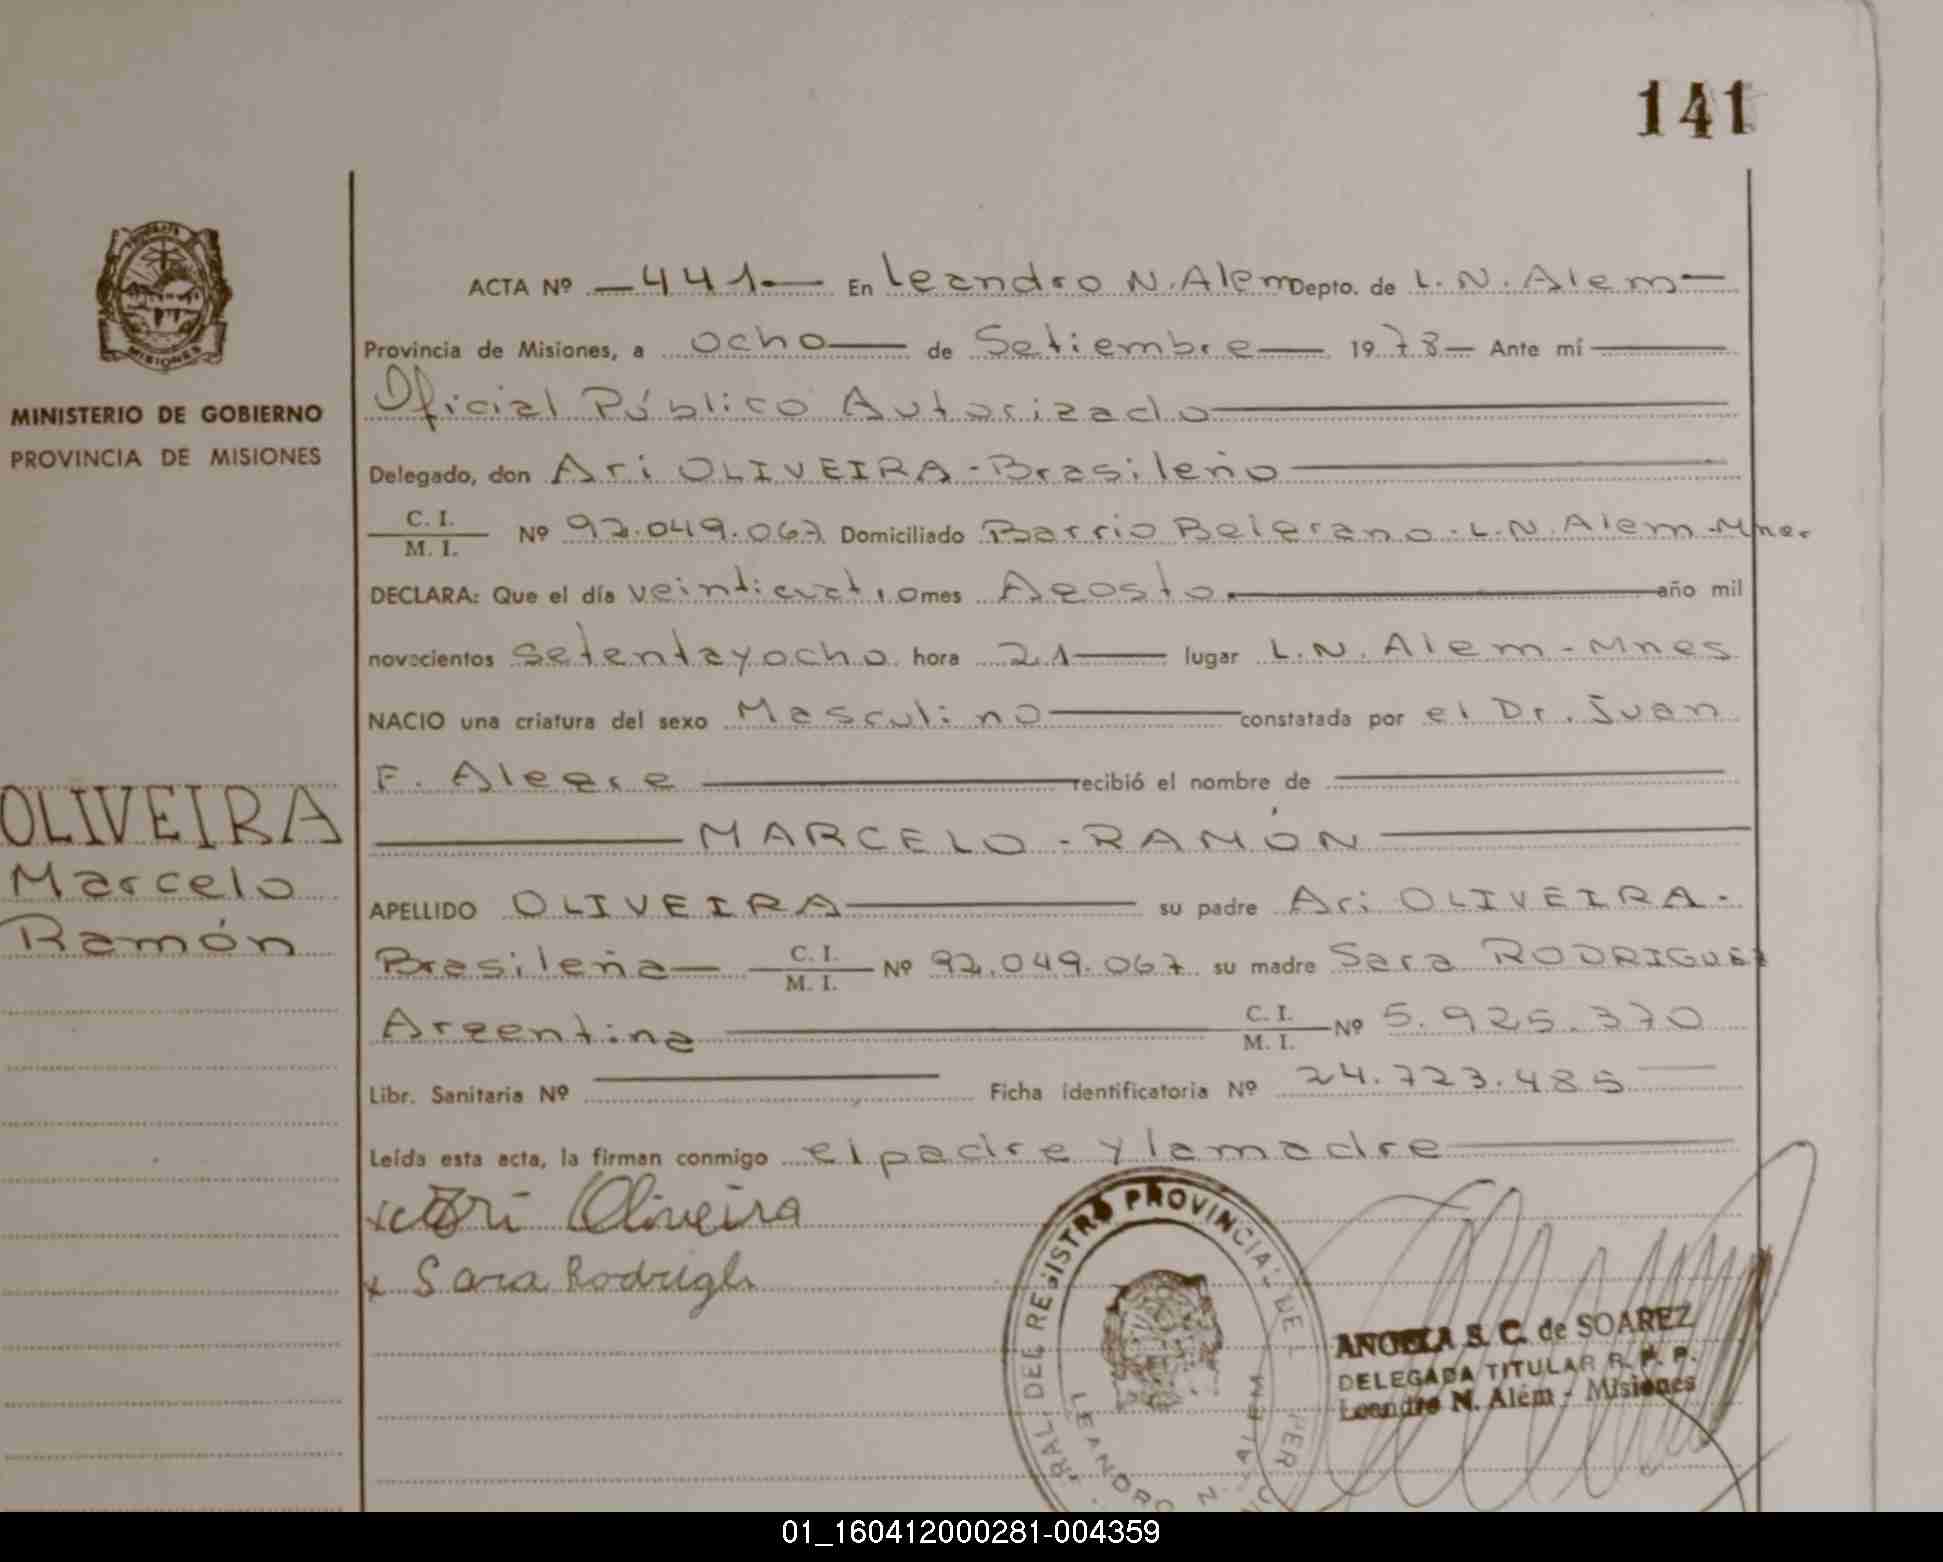 141
ACTA Nº —441— En Leandro N. Alem Depto. de L. N. Alem—
Provincia de Misiones, a ocho— de Setiembre— 1978— Ante mí —
Oficial Público Autorizado—
Delegado, don Ari OLIVEIRA - Brasileño—
C. I.
M. I. Nº 92.049.067 Domiciliado Barrio Belgrano - L.N. Alem - Mnes
DECLARA: Que el día veinticuatro mes Agosto.— año mil
novecientos setentayocho hora 21— lugar L.N. Alem - Mnes
NACIO una criatura del sexo Masculino— constatada por el Dr. Juan
F. Alegre — recibió el nombre de —
— MARCELO - RAMÓN —
APELLIDO OLIVEIRA— su padre Ari OLIVEIRA -
Brasileña— C. I. M. I. Nº 92.049.067 su madre Sara RODRIGUEZ
Argentina — C. I. M. I. Nº 5.925.370
Libr. Sanitaria Nº — Ficha identificatoria Nº 24.723.485—
Leída esta acta, la firman conmigo el padre y la madre—
x Ari Oliveira
x Sara Rodrigh
MISIONES
MINISTERIO DE GOBIERNO
PROVINCIA DE MISIONES
OLIVEIRA
Marcelo
Ramón
RAL DEL REGISTRO PROVINCIAL DE L PER
LEANDRO N. ALEM
ANGELA S. C. de SOAREZ
DELEGADA TITULAR R. P. P.
Leandro N. Alem - Misiones
01_160412000281-004359